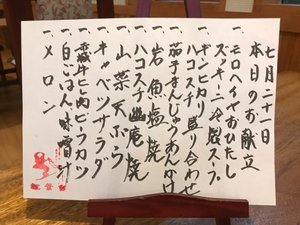 七月二十一日
本日のお献立
一、モロヘイヤおひたし
一、ズッキーニ冷製スープ
一、ギンヒカリ ハコスチ 盛り合わせ
一、茄子まんじゅうあんかけ
一、岩魚塩焼
一、ハコスチ幽庵焼
一、山菜天ぷら
一、キャベツサラダ
一、赤城牛ヒレ肉ビーフカツ
一、白ごはん 味噌汁
一、メロン